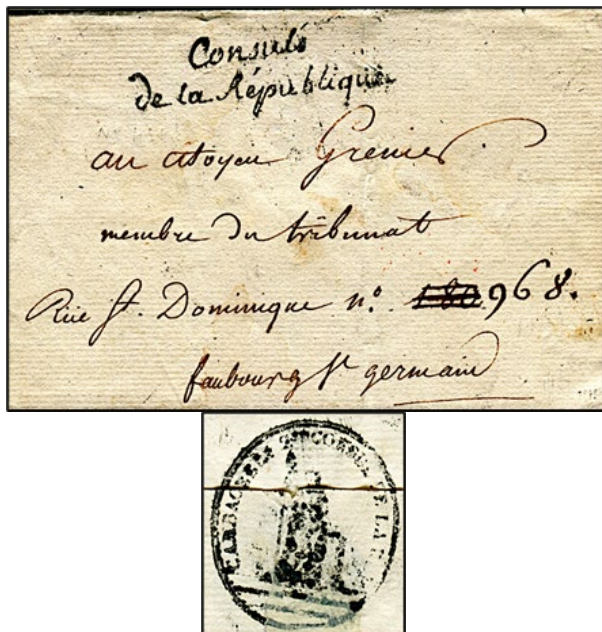 Consuls
de la République
au citoyen Grenier
membre du tribunat
Rue St. Dominique n.° 180 968.
faubourg St germain
CAMBACERES 2E CONSUL DE LA R